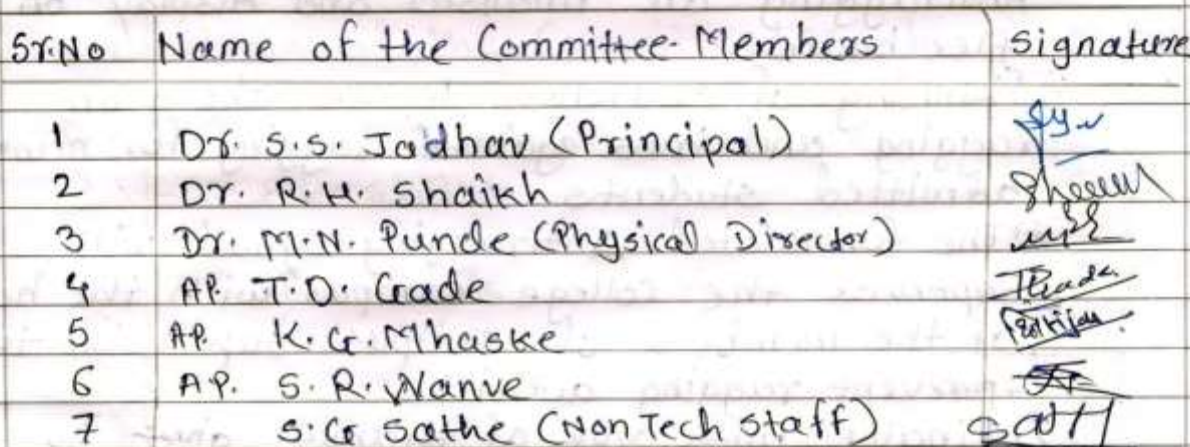 Sr.No Name of the Committee Members signature
1 Dr. S.S. Jadhav (Principal)
2 Dr. R.H. Shaikh
3 Dr. M.N. Punde (Physical Director)
4 AP. T.D. Gade
5 AP. K.G. Mhaske
6 AP. S.R. Wanve
7 S.G Sathe (Non Tech Staff)